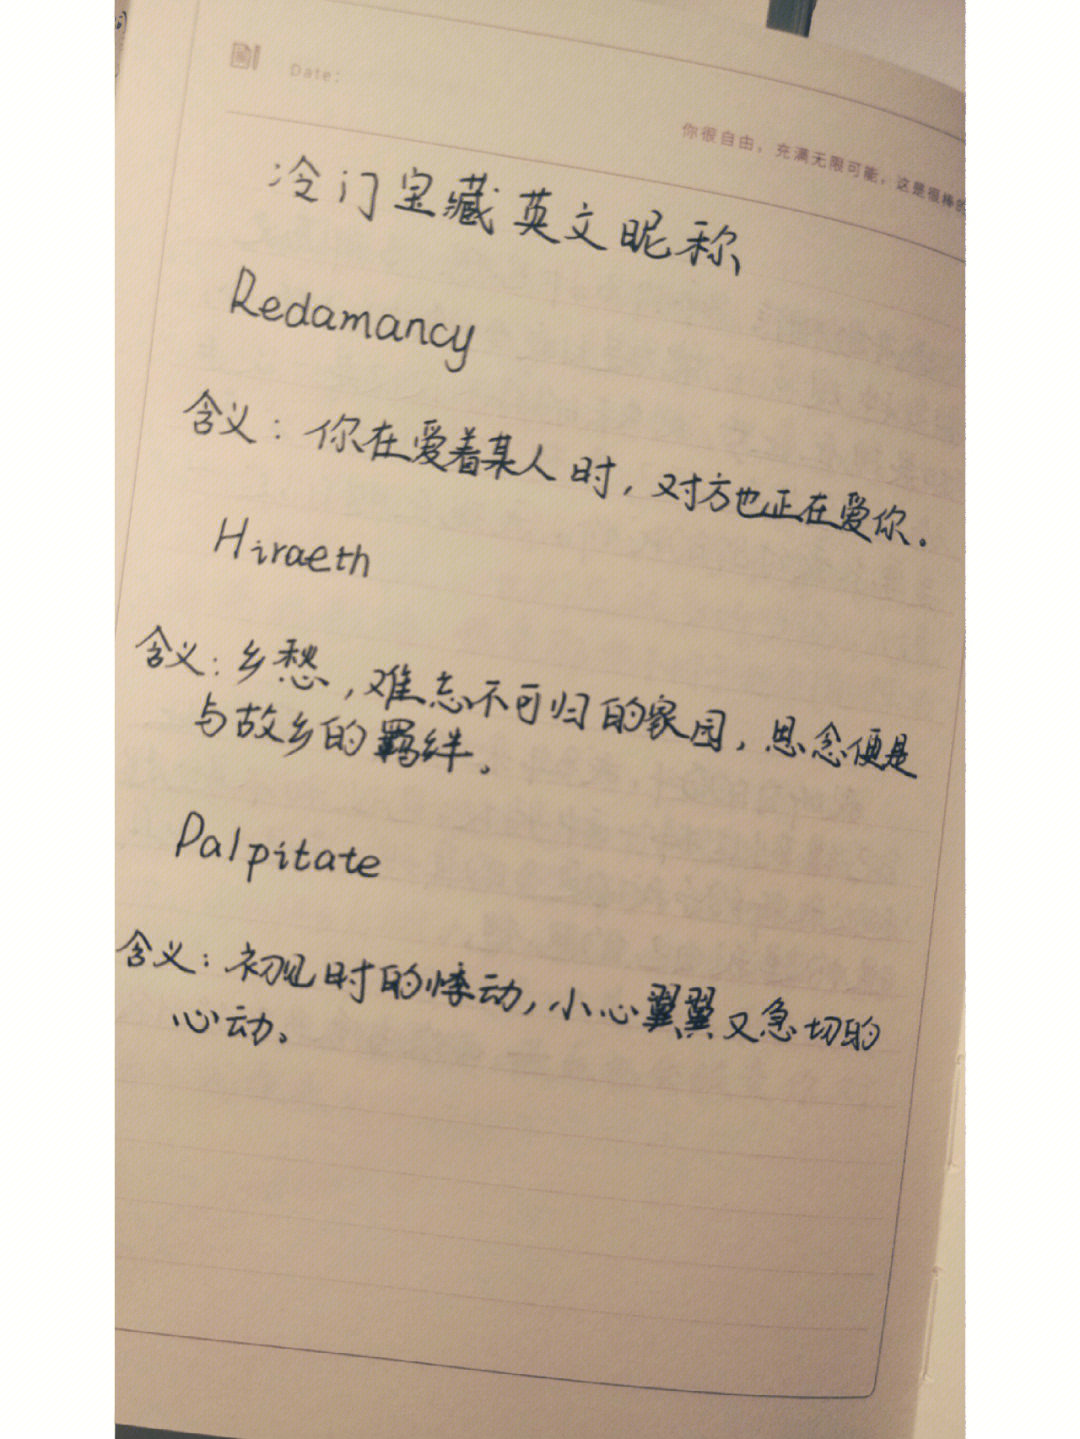 Date:
你很自由，充满无限可能，这是很棒的
冷门宝藏英文昵称
Redamancy
含义：你在爱着某人时，对方也正在爱你。
Hiraeth
含义：乡愁，难忘不可归的家园，思念便是
与故乡的羁绊。
Palpitate
含义：初见时的悸动，小心翼翼又急切的
心动。